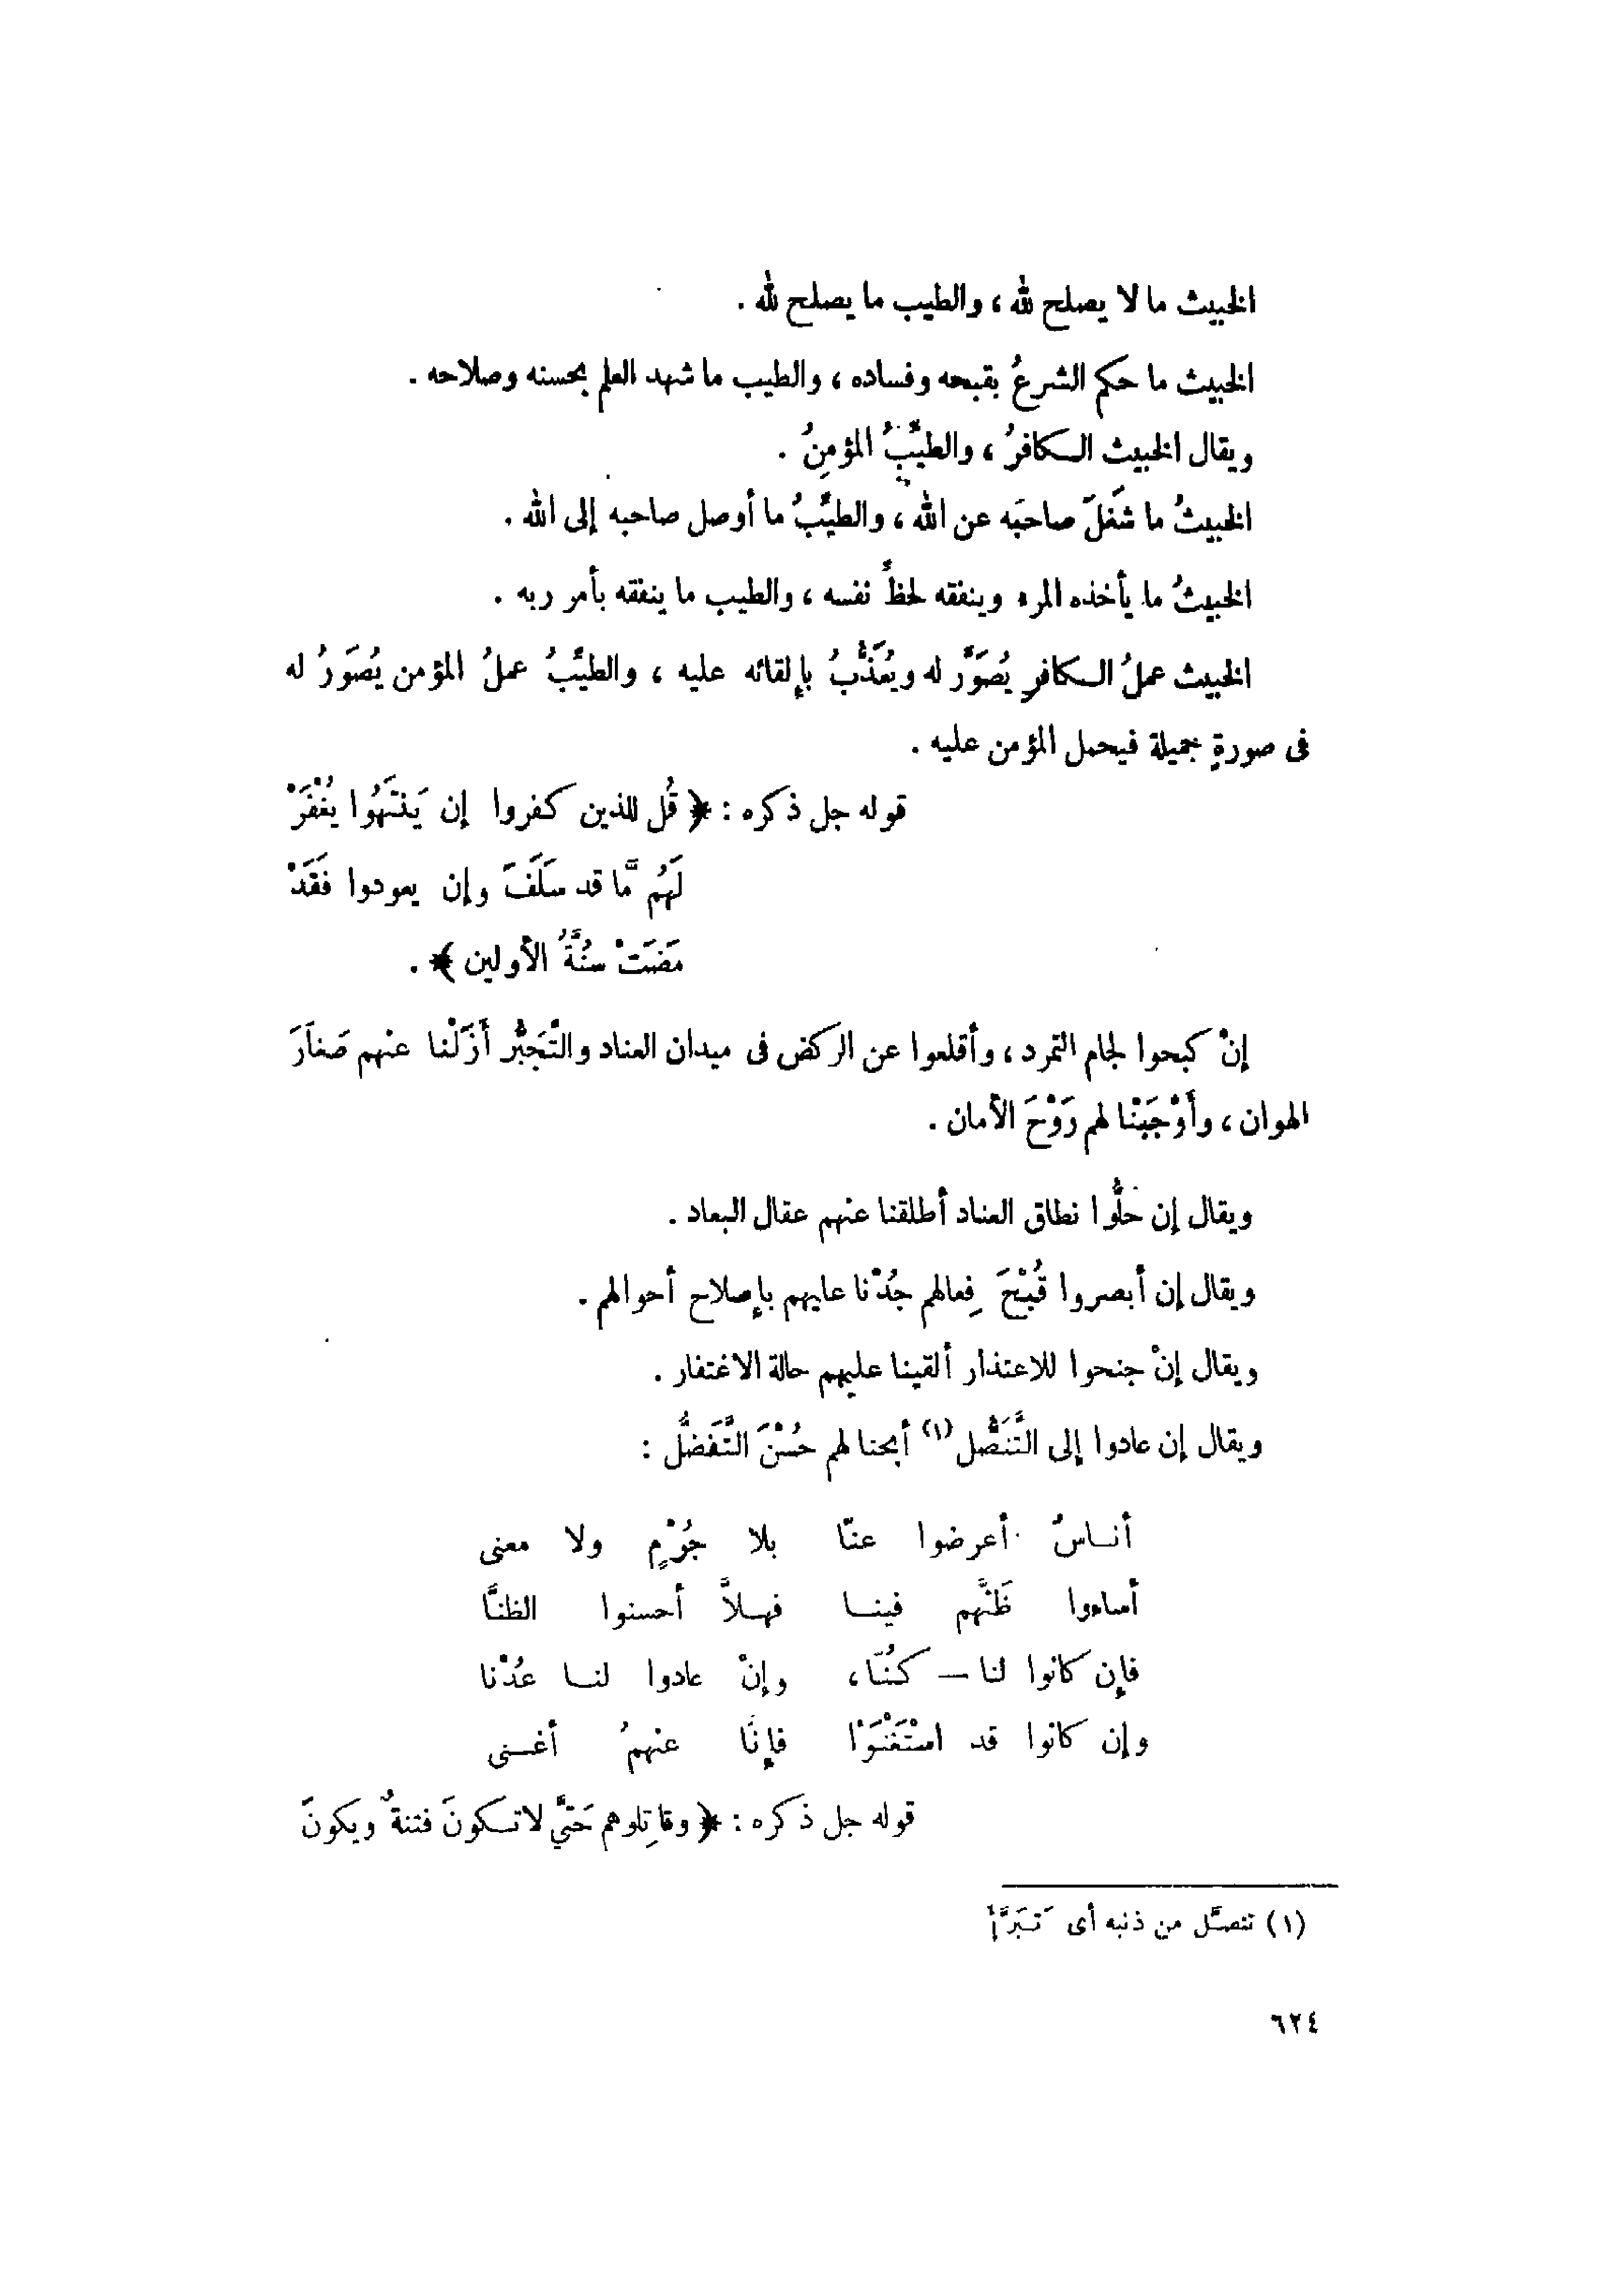 الخبيث ما لا يصلح لله ، والطيب ما يصلح لله .
الخبيث ما حكم الشرعُ بقبحه وفساده ، والطيب ما شهد العلم بحسنه وصلاحه .
ويقال الخبيث الكافرُ ، والطيِّبُ المؤمنُ .
الخبيثُ ما شَغَلَ صاحبَه عن الله ، والطيِّبُ ما أوصل صاحبه إلى الله .
الخبيثُ ما يأخذه المرء وينفقه لحظِّ نفسه ، والطيب ما ينفقه بأمر ربه .
الخبيث عملُ الكافرِ يُصَوَّر له ويُعَذَّبُ بإلقائه عليه ، والطيِّبُ عملُ المؤمن يُصَوَرُ له
فى صورةٍ جميلة فيحمل المؤمن عليه .
قوله جل ذكره : ﴿ قُل للذين كفروا إن يَنتَهُوا يُغْفَرْ
لَهُم مَّا قد سَلَفَ وإن يعودوا فَقَدْ
مَضَتْ سُنَّةُ الأولين ﴾ .
إنْ كبحوا لجام التمرد ، وأقلعوا عن الركض فى ميدان العناد والتَّجَبُّر أَزَلْنا عنهم صَغَارَ
الهوان ، وأَوْجَبْنا لهم رَوْحَ الأمان .
ويقال إن حَلُّوا نطاق العناد أطلقنا عنهم عقال البعاد .
ويقال إن أبصروا قُبْحَ فِعالهم جُدْنا عليهم بإصلاح أحوالهم .
ويقال إنْ جنحوا للاعتذار ألقينا عليهم حالة الاغتفار .
ويقال إن عادوا إلى التَّنَصُّل (١) أبحنا لهم حُسْنَ التَّفَضُّل :
أناسٌ أعرضوا عنّا بلا جُرْمٍ ولا معنى
أساءوا ظَنَّهم فينا فهلاَّ أحسنوا الظنَّا
فإن كانوا لنا — كُنّا ، وإنْ عادوا لنا عُدْنا
وإن كانوا قد استَغْنَوْا فإنَّا عنهمُ أغنى
قوله جل ذكره : ﴿ وقاتِلوهم حَتَّى لا تكونَ فتنةٌ ويكونَ
(١) تنصَّل من ذنبه أى تَبَرَّأ
٦٢٤